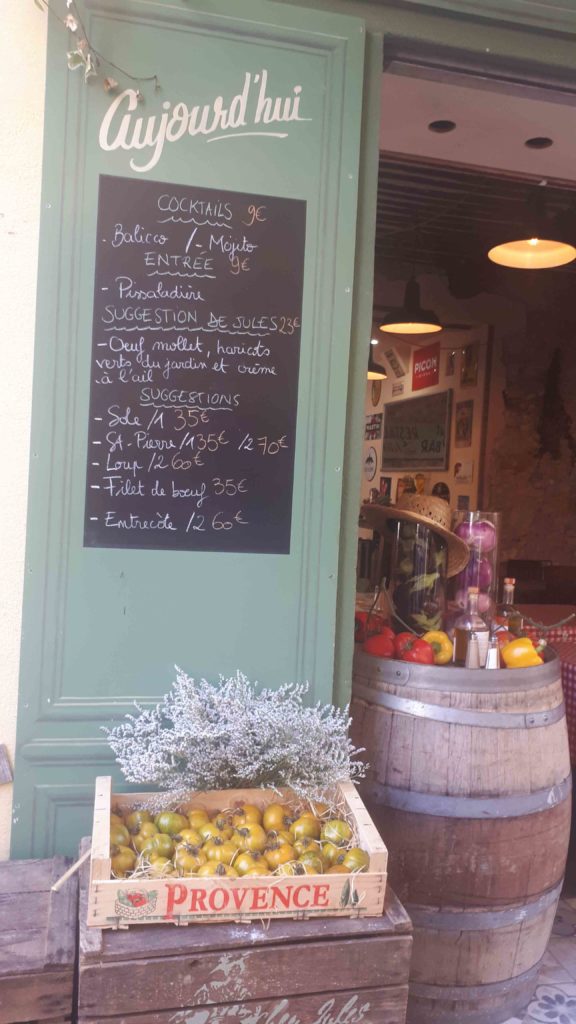 Aujourd'hui
COCKTAILS 9€
- Balicco / - Mojito
ENTRÉE 9€
- Pissaladière
SUGGESTION DE JULES 23€
- Oeuf mollet, haricots
verts du jardin et crème
à l'ail
SUGGESTIONS
- Sole /1 35€
- St. Pierre /1 35€ /2 70€
- Loup /2 60€
- Filet de boeuf 35€
- Entrecôte /2 60€
PICON
BAR
PROVENCE
Chez Jules